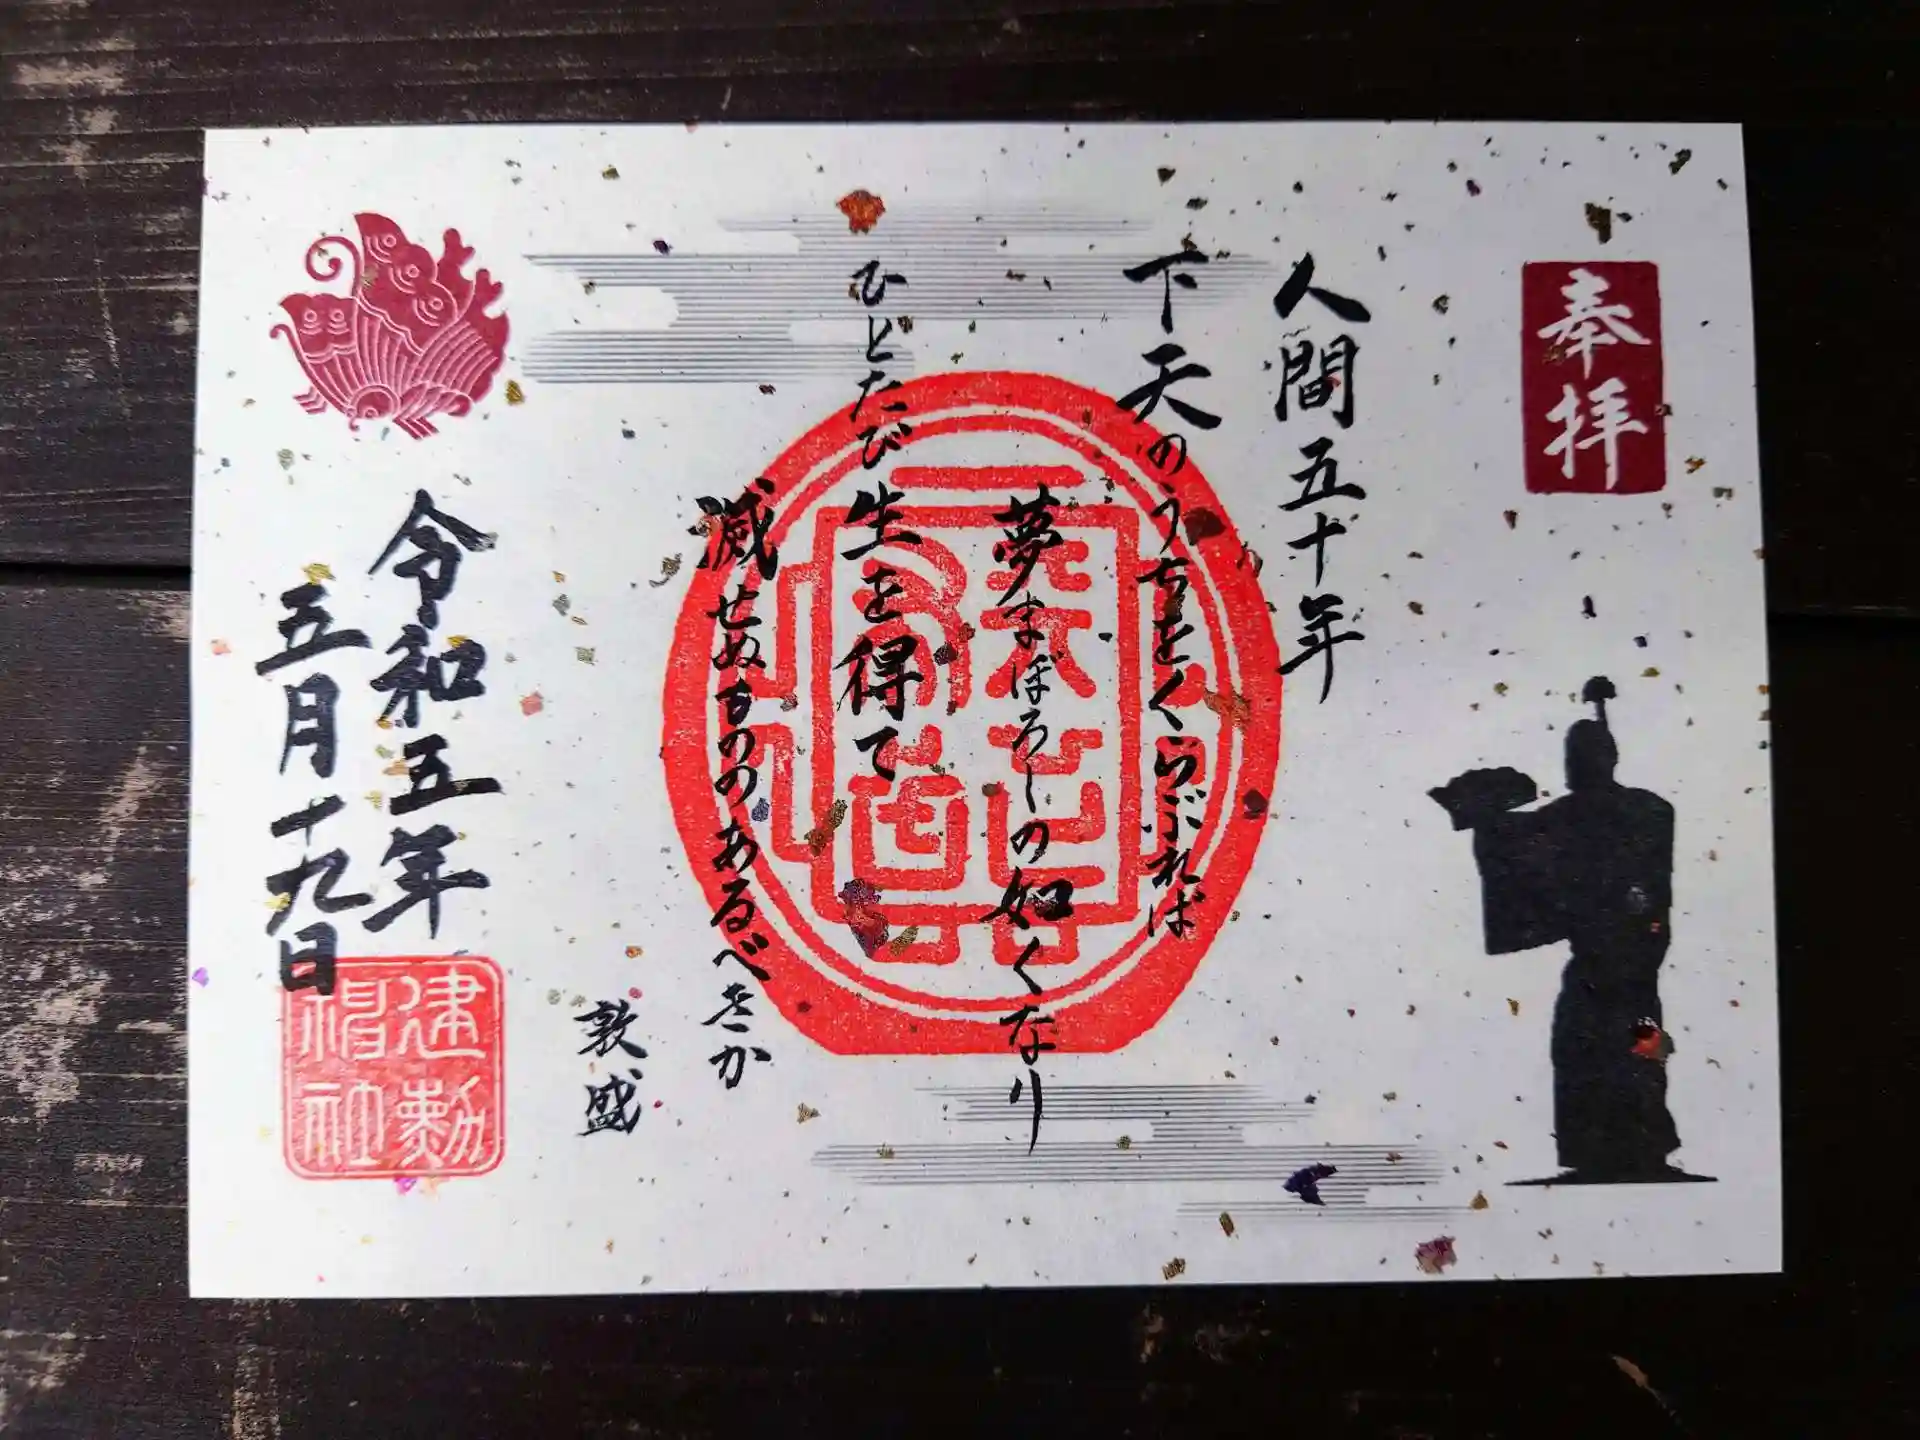 奉拝
人間五十年
下天のうちをくらぶれば
夢まぼろしの如くなり
ひとたび生を得て
滅せぬもののあるべきか
敦盛
令和五年
五月十九日
建勲
神社